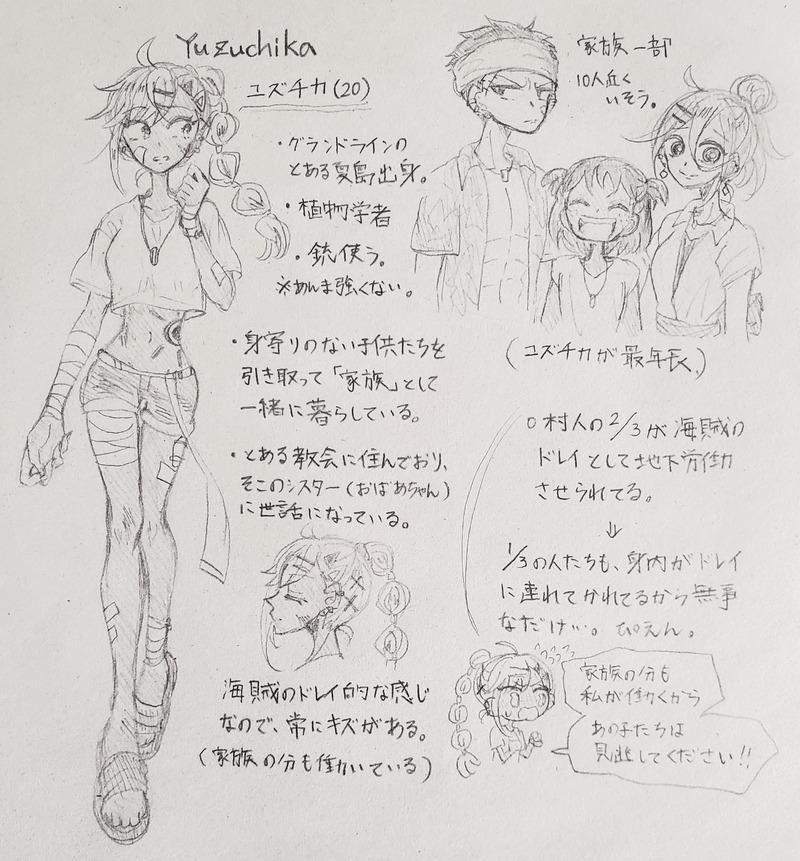 Yuzuchika
ユズチカ(20)
・グランドラインの
とある夏島出身。
・植物学者
・銃使う。
※あんま強くない。
・身寄りのない子供たちを
引き取って「家族」として
一緒に暮らしている。
・とある教会に住んでおり、
そこのシスター(おばあちゃん)
に世話になっている。
海賊のドレイ的な感じ
なので、常にキズがある。
(家族の分も働いている)
家族一部
10人近く
いそう。
(ユズチカが最年長。)
○村人の2/3が海賊の
ドレイとして地下労働
させられてる。
⇓
1/3の人たちも、身内がドレイ
に連れてかれてるから無事
なだけ…。ぴえん。
家族の分も
私が働くから
あの子たちは
見逃してください!!